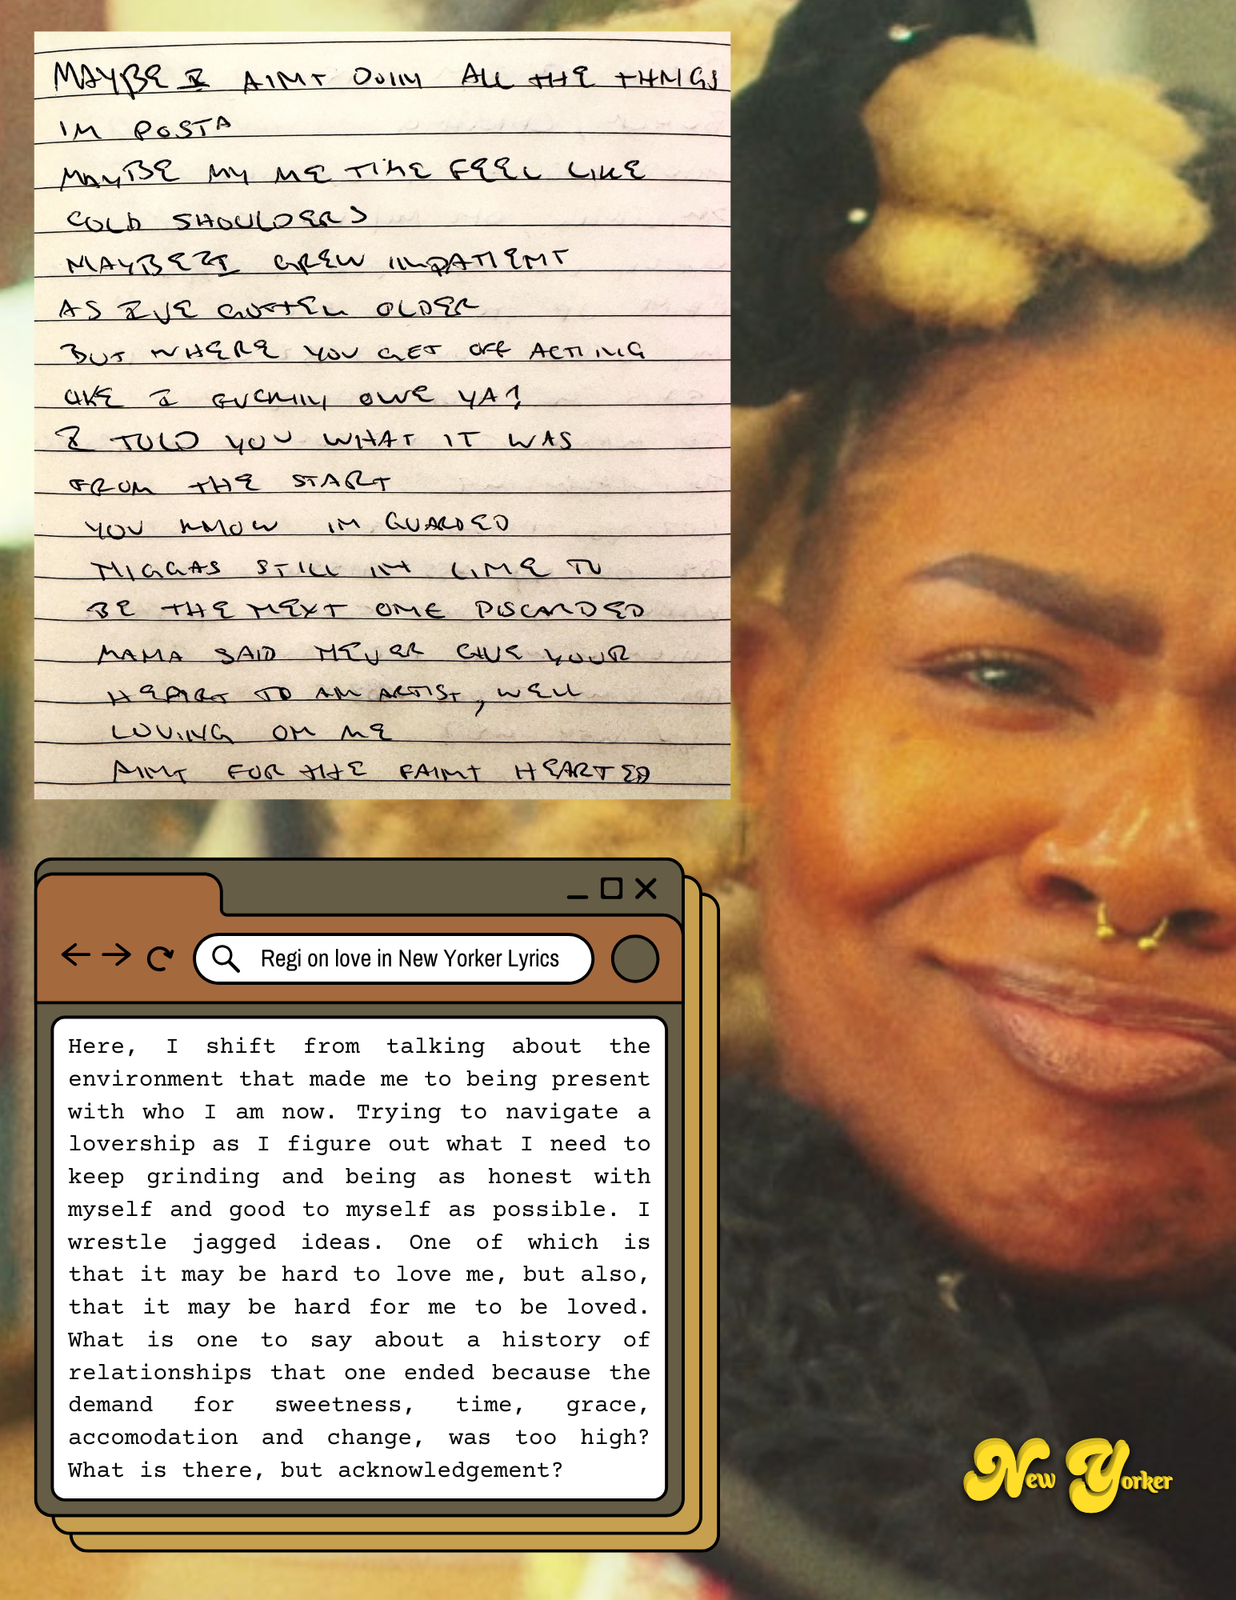 MAYBE I AINT DOIN ALL THE THINGS
IM POSTA
MAYBE MY ME TIME FEEL LIKE
COLD SHOULDERS
MAYBE I GREW IMPATIENT
AS IVE GOTTEN OLDER
BUT WHERE YOU GET OFF ACTING
LIKE I FUCKIN OWE YA?
I TOLD YOU WHAT IT WAS
FROM THE START
YOU KNOW IM GUARDED
NIGGAS STILL IN LINE TO
BE THE NEXT ONE DISCARDED
MAMA SAID NEVER GIVE YOUR
HEART TO AN ARTIST, WELL
LOVING ON ME
AINT FOR THE FAINT HEARTED
Regi on love in New Yorker Lyrics
Here, I shift from talking about the
environment that made me to being present
with who I am now. Trying to navigate a
lovership as I figure out what I need to
keep grinding and being as honest with
myself and good to myself as possible. I
wrestle jagged ideas. One of which is
that it may be hard to love me, but also,
that it may be hard for me to be loved.
What is one to say about a history of
relationships that one ended because the
demand for sweetness, time, grace,
accomodation and change, was too high?
What is there, but acknowledgement?
New Yorker